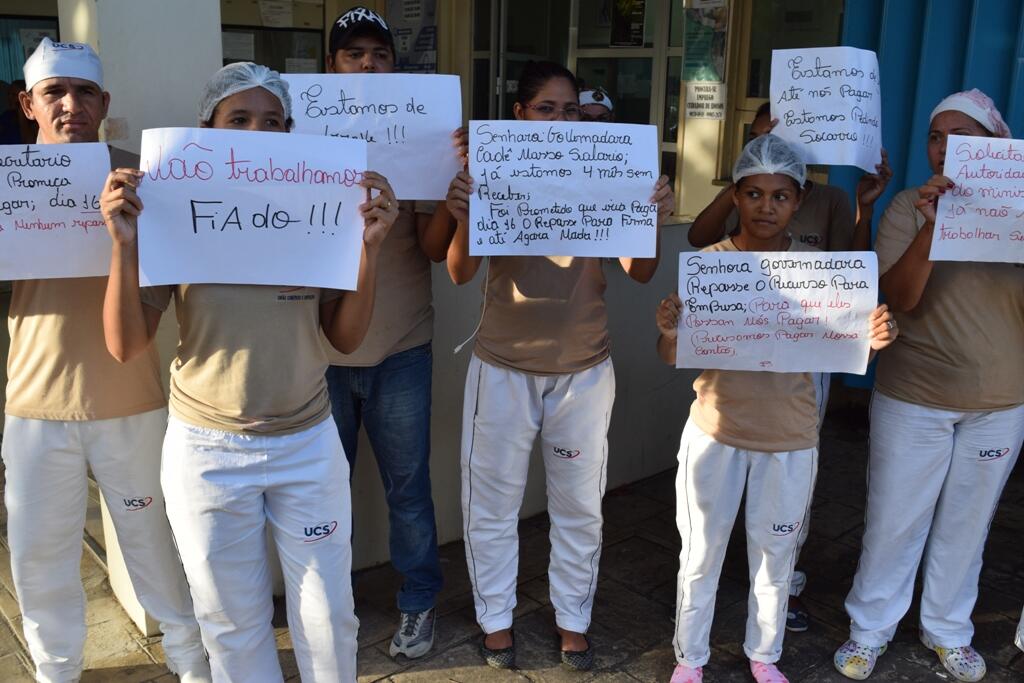 UCS
FIXA
Promiça
gar; dia 16
Ninhum repas
Não trabalhamos
FiAdo!!!
Estamos de
!!!
Senhora Governadara
Cadê Nosso Salario;
Já estamos 4 mês sem
Receber;
Foi Prometido que iria Paga
dia 16 O Repasse Para Firma
e até Agara Nada!!!
PROCURA-SE
EMPREGO
Estamos de
Até nós Pagar
Estamos Pedindo
Socorro!!!
Senhora governadara
Repasse O Ricurso Para
Empresa; Para que eles
Possan Nós Pagar!
Precisamos Pagar Nossa
Conta;
Solicita
Autoridad
do minis
Já não
trabalhar S
UCS
UCS
UCS
UCS
UCS